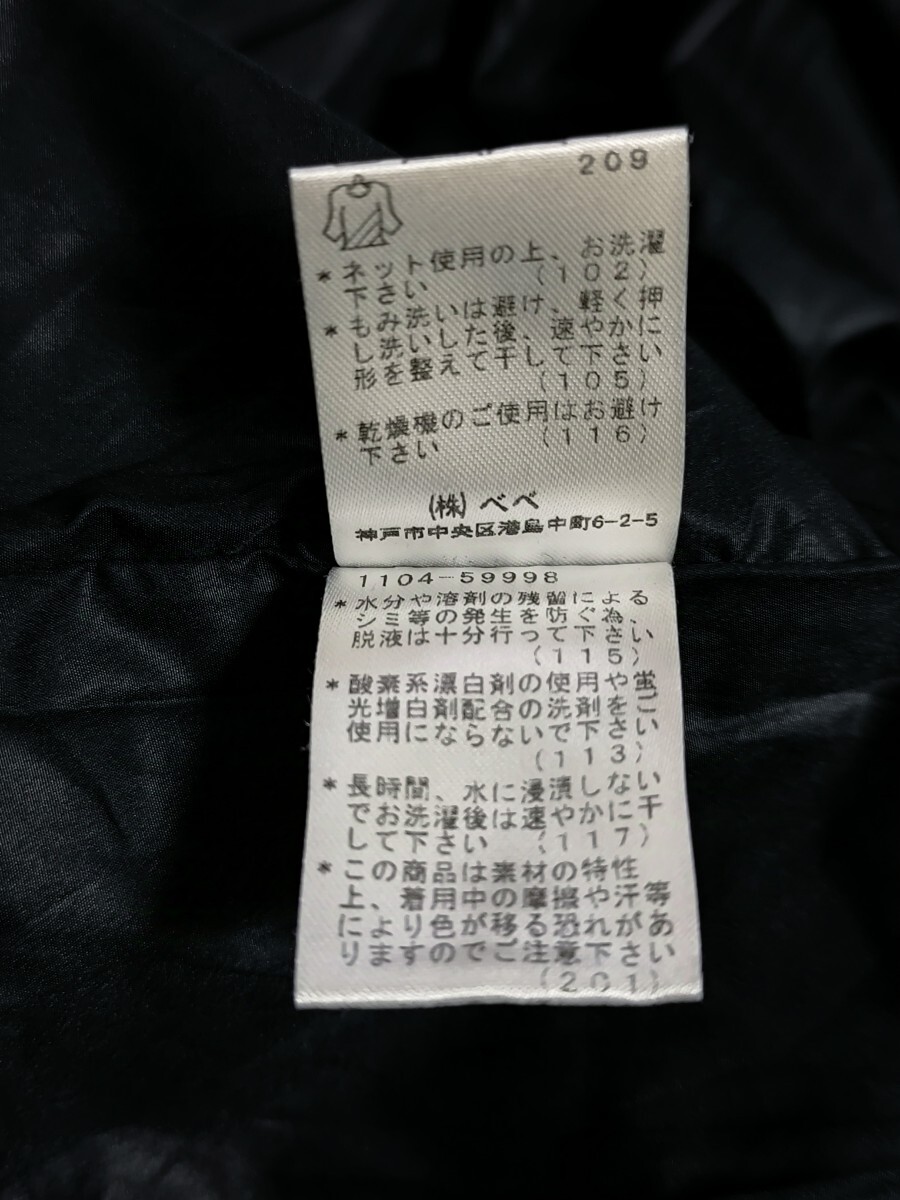 209
*ネット使用の上、お洗濯
下さい (102)
*もみ洗いは避け、軽く押
し洗いした後、速やかに
形を整えて干して下さい
(105)
*乾燥機のご使用はお避け
下さい (116)
(株)べべ
神戸市中央区港島中町6-2-5
1104-59998
*水分や溶剤の残留による
シミ等の発生を防ぐ為、
脱液は十分行って下さい
(115)
*酸素系漂白剤の使用や蛍
光増白剤配合の洗剤をご
使用にならないで下さい
(113)
*長時間、水に浸漬しない
でお洗濯後は速やかに干
して下さい (117)
*この商品は素材の特性
上、着用中の摩擦や汗等
により色が移る恐れがあ
りますのでご注意下さい
(201)